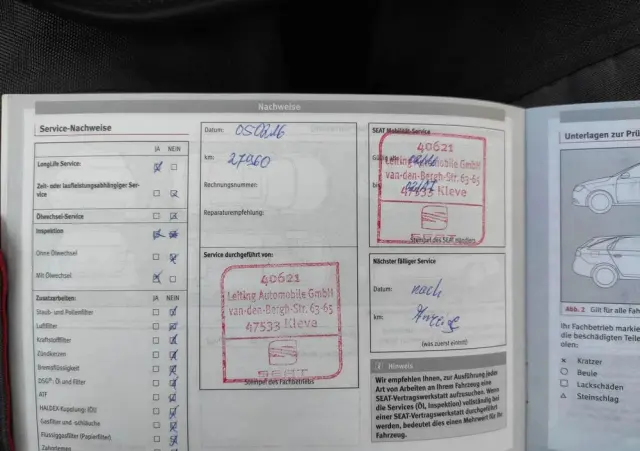 Nachweise
Service-Nachweise
JA NEIN
LongLife Service:
Zeit- oder laufleistungsabhängiger Ser-
vice
Ölwechsel-Service
Inspektion
Ohne Ölwechsel
Mit Ölwechsel
Zusatzarbeiten: JA NEIN
Staub- und Pollenfilter
Luftfilter
Kraftstofffilter
Zündkerzen
Bremsflüssigkeit
DSG®: Öl und Filter
ATF
HALDEX-Kupplung: (Öl)
Gasfilter und -schläuche
Flüssiggasfilter (Papierfilter)
Zahnriemen
Datum: 050216
km: 27960
Rechnungsnummer:
Reparaturempfehlung:
Service durchgeführt von:
40621
Leiting Automobile GmbH
van-den-Bergh-Str. 63-65
47533 Kleve
SEAT
Stempel des Fachbetriebs
SEAT Mobilitäts-Service
40621
Leiting Automobile GmbH
van-den-Bergh-Str. 63-65
47533 Kleve
bis
SEAT
Stempel des SEAT Händlers
Nächster fälliger Service
Datum: nach
km: Anzeige
(was zuerst eintritt)
Hinweis
Wir empfehlen Ihnen, zur Ausführung jeder
Art von Arbeiten an Ihrem Fahrzeug eine
SEAT-Vertragswerkstatt aufzusuchen. Wenn
die Services (Öl, Inspektion) vollständig bei
einer SEAT-Vertragswerkstatt durchgeführt
werden, bedeutet dies einen Mehrwert für Ihr
Fahrzeug.
Unterlagen zur Prü
Abb. 2 Gilt für alle Fah
Ihr Fachbetrieb markie
die beschädigten Teile
olen:
Kratzer
Beule
Lackschäden
Steinschlag